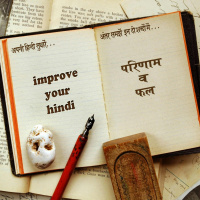 अपनी हिन्दी सुधारें...
improve
your
hindi
अंतर समझें इन दो शब्दों में...
परिणाम
व
फल